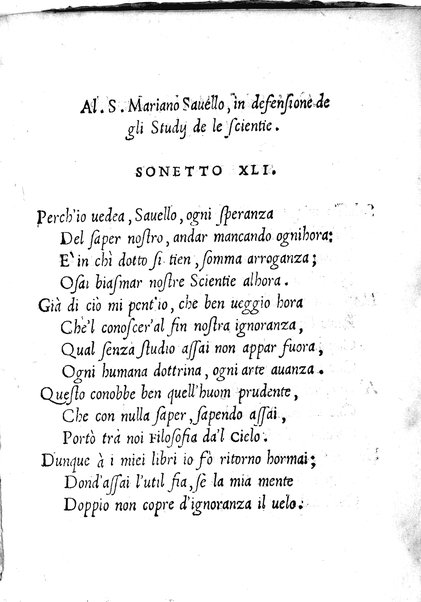 Al. S. Mariano Sauello, in defensione de
gli Study de le scientie.
SONETTO XLI.
Perch'io uedea, Sauello, ogni speranza
Del saper nostro, andar mancando ognihora:
E' in chì dotto si tien, somma arroganza;
Osai biasmar nostre Scientie alhora.
Già di ciò mi pent'io, che ben ueggio hora
Chè'l conoscer'al fin nostra ignoranza,
Qual senza studio assai non appar fuora,
Ogni humana dottrina, ogni arte auanza.
Questo conobbe ben quell'huom prudente,
Che con nulla saper, sapendo assai,
Portò trà noi Filosofia da'l Cielo.
Dunque à i miei libri io fò ritorno hormai;
Dond'assai l'util fia, sè la mia mente
Doppio non copre d'ignoranza il uelo.